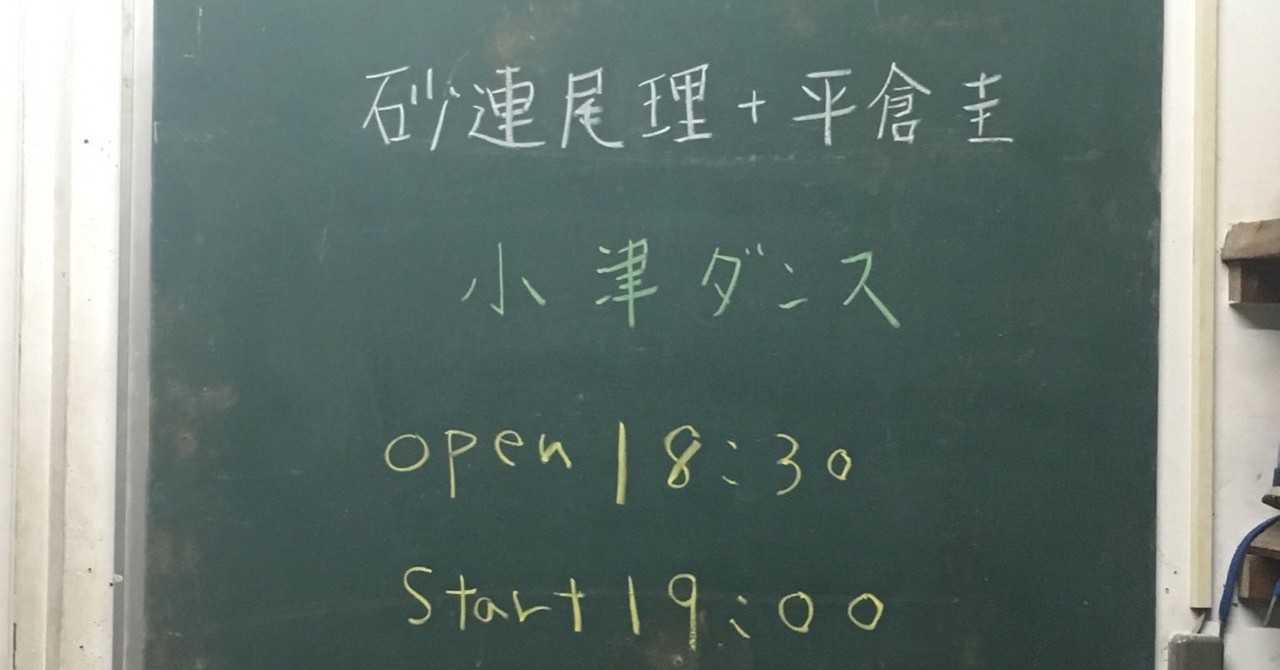 砂連尾理+平倉圭
小津ダンス
open 18:30
Start 19:00